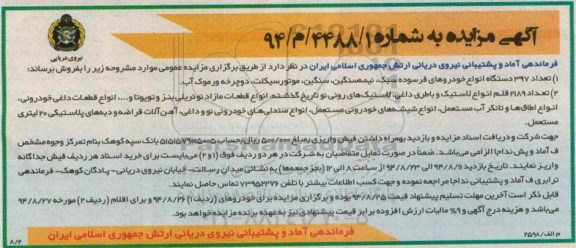 آگهی مزایده به شماره ۹۴/م/۴۴۸۸/۱
نیروی دریایی
فرماندهی آماد و پشتیبانی نیروی دریائی ارتش جمهوری اسلامی ایران در نظر دارد از طریق برگزاری مزایده عمومی موارد مشروحه زیر را بفروش برساند:
۱) تعداد ۳۹۷ دستگاه انواع خودروهای فرسوده سبک، نیمه‌سنگین، سنگین، موتورسیکلت، دوچرخه و رموک آب.
۲) تعداد ۲۱۸۹ قلم انواع لاستیک و باطری داغی، لاستیک‌های رونی نو تاریخ گذشته، انواع قطعات مازاد نوتریلی بنز و تویوتا و...، انواع قطعات داغی خودروئی،
انواع اطاق‌ها و تانکر آب مستعمل، انواع شیشه‌های خودروئی مستعمل، انواع صندلی‌های خودروئی نو و داغی، آهن آلات قراضه و دبه‌های پلاستیکی ۲۰ لیتری
مستعمل.
جهت شرکت و دریافت اسناد مزایده و بازدید بهمراه داشتن فیش واریزی بمبلغ ۵۰۰/۰۰۰ ریال بحساب بانک سپه کوهک بنام تمرکز وجوه مشخص
ف آماد و پش نداجا الزامی می‌باشد. ضمناً در صورت تمایل متقاضیان به شرکت در هر دو ردیف فوق (۱ و ۲) می‌بایست برای خرید اسناد هر ردیف فیش جداگانه
واریز نمایند. تاریخ بازدید ۹۴/۸/۱۱ الی ۹۴/۸/۲۳ از ساعت ۸ الی ۱۲ (بجز جمعه‌ها) به نشانی میدان رسالت- خیابان نیروی دریائی- پادگان کوهک- فرماندهی
ترابری ف آماد و پشتیبانی نداجا مراجعه نموده و جهت کسب اطلاعات بیشتر با تلفن ۷۳۹۵۲۲۷۶ تماس حاصل نمایند.
قابل ذکر است آخرین مهلت تسلیم پیشنهاد قیمت ۹۴/۸/۲۵ بوده و برگزاری مزایده برای خودروهای (ردیف ۱) ۹۴/۸/۲۶ و برای اقلام (ردیف ۲) مورخه ۹۴/۸/۲۷
می‌باشد و هزینه درج آگهی و ۹% مالیات ارزش افزوده بر ابر قیمت پیشنهادی نیز به عهده برنده مزایده خواهد بود.
م الف/۲۵۹۸
فرماندهی آماد و پشتیبانی نیروی دریائی ارتش جمهوری اسلامی ایران
۸/۲